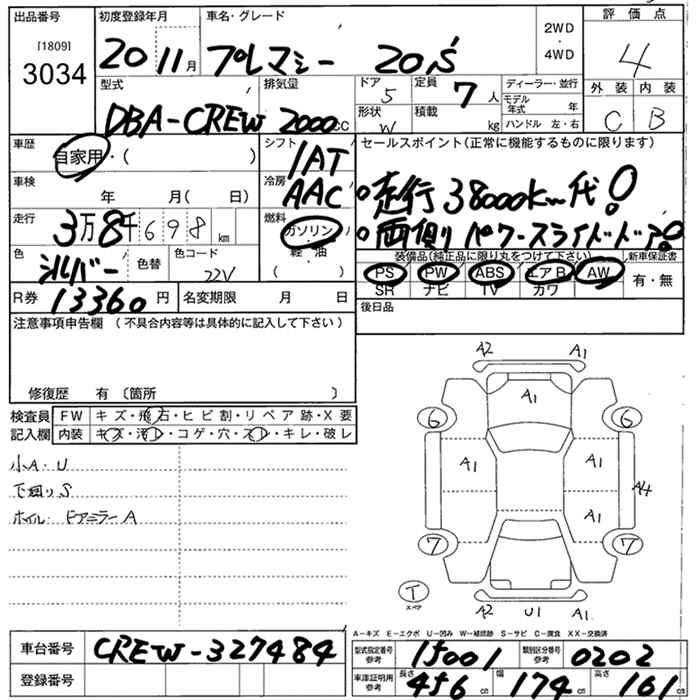 出品番号
[1809]
3034
初度登録年月
20 11月
車名・グレード
プレマシー 20S
2WD
・
4WD
評価点
4
外装 内装
C B
型式
DBA-CREW
排気量
2000cc
ドア
5
定員
7人
形状
W
積載
kg
ディーラー・並行
モデル年式 年
ハンドル 左・右
車歴
自家用・( )
シフト
IAT
車検
年 月( 日)
冷房
AAC
走行
3万8千698km
燃料
ガソリン
軽・油
( )
色
シルバー
色替
色コード
22V
R券 13360円
名変期限 月 日
セールスポイント(正常に機能するものに限ります)
○走行38000km代!
○両側パワースライドドア!
装備品(純正品に限り丸をつけて下さい)
新車保証書
PS PW ABS エアB AW
SR ナビ TV カワ
有・無
後日品
注意事項申告欄 (不具合内容等は具体的に記入して下さい)
修復歴 有 〔箇所 〕
検査員記入欄
FW キズ・飛石・ヒビ割・リペア跡・X要
内装 キズ・汚レ・コゲ・穴・スレ・キレ・破レ
小A・U
下廻りS
ホイル・ドアミラーA
A2 A1
A1
6 6
A1 A1
A4
A1
7 7
T
スペア
A2 U1 A1
A-キズ E-エクボ U-凹み W-補修跡 S-サビ C-腐食 XX-交換済
車台番号 CREW-327484
登録番号
型式指定番号 参考 15001
類別区分番号 参考 0202
車庫証明用 参考
長さ 456cm
幅 174cm
高さ 161cm